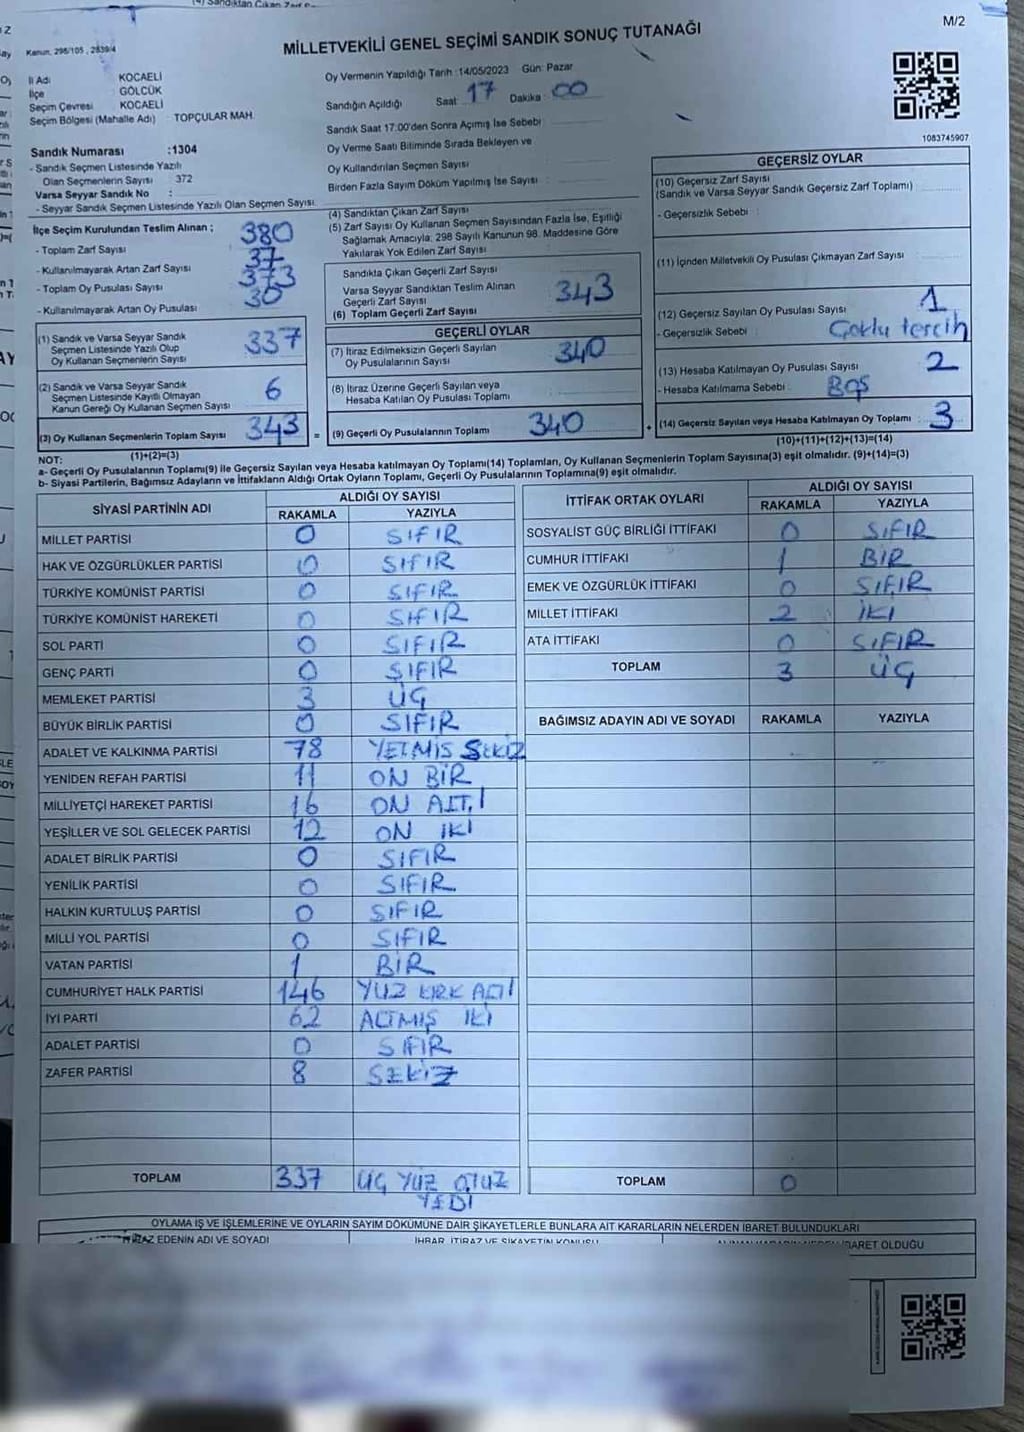 M/2
Kanun, 298/105 , 2839/4
MİLLETVEKİLİ GENEL SEÇİMİ SANDIK SONUÇ TUTANAĞI
İl Adı KOCAELİ
İlçe GÖLCÜK
Seçim Çevresi KOCAELİ
Seçim Bölgesi (Mahalle Adı) : TOPÇULAR MAH.
Sandık Numarası :1304
- Sandık Seçmen Listesinde Yazılı
Olan Seçmenlerin Sayısı : 372
Varsa Seyyar Sandık No :
- Seyyar Sandık Seçmen Listesinde Yazılı Olan Seçmen Sayısı:
Oy Vermenin Yapıldığı Tarih :14/05/2023 Gün: Pazar
Sandığın Açıldığı Saat: 17 Dakika : 00
Sandık Saat 17:00'den Sonra Açımış İse Sebebi :
Oy Verme Saati Bitiminde Sırada Bekleyen ve
Oy Kullandırılan Seçmen Sayısı :
Birden Fazla Sayım Döküm Yapılmış İse Sayısı :
1083745907
İlçe Seçim Kurulundan Teslim Alınan ;
- Toplam Zarf Sayısı : 380
- Kullanılmayarak Artan Zarf Sayısı : 37
- Toplam Oy Pusulası Sayısı : 373
- Kullanılmayarak Artan Oy Pusulası : 30
(1) Sandık ve Varsa Seyyar Sandık
Seçmen Listesinde Yazılı Olup
Oy Kullanan Seçmenlerin Sayısı : 337
(2) Sandık ve Varsa Seyyar Sandık
Seçmen Listesinde Kayıtlı Olmayan
Kanun Gereği Oy Kullanan Seçmen Sayısı : 6
(3) Oy Kullanan Seçmenlerin Toplam Sayısı : 343
(1)+(2)=(3)
(4) Sandıktan Çıkan Zarf Sayısı :
(5) Zarf Sayısı Oy Kullanan Seçmen Sayısından Fazla İse, Eşitliği
Sağlamak Amacıyla; 298 Sayılı Kanunun 98. Maddesine Göre
Yakılarak Yok Edilen Zarf Sayısı :
Sandıkta Çıkan Geçerli Zarf Sayısı :
Varsa Seyyar Sandıktan Teslim Alınan
Geçerli Zarf Sayısı :
(6) Toplam Geçerli Zarf Sayısı : 343
GEÇERLİ OYLAR
(7) İtiraz Edilmeksizin Geçerli Sayılan
Oy Pusulalarının Sayısı : 340
(8) İtiraz Üzerine Geçerli Sayılan veya
Hesaba Katılan Oy Pusulaları Toplamı :
= (9) Geçerli Oy Pusulalarının Toplamı : 340 +
GEÇERSİZ OYLAR
(10) Geçersiz Zarf Sayısı
(Sandık ve Varsa Seyyar Sandık Geçersiz Zarf Toplamı) :
- Geçersizlik Sebebi :
(11) İçinden Milletvekili Oy Pusulası Çıkmayan Zarf Sayısı :
(12) Geçersiz Sayılan Oy Pusulası Sayısı : 1
- Geçersizlik Sebebi : Çoklu tercih
(13) Hesaba Katılmayan Oy Pusulası Sayısı : 2
- Hesaba Katılmama Sebebi : BOŞ
(14) Geçersiz Sayılan veya Hesaba Katılmayan Oy Toplamı : 3
(10)+(11)+(12)+(13)=(14)
NOT:
a- Geçerli Oy Pusulalarının Toplamı(9) ile Geçersiz Sayılan veya Hesaba katılmayan Oy Toplamı(14) Toplamları, Oy Kullanan Seçmenlerin Toplam Sayısına(3) eşit olmalıdır. (9)+(14)=(3)
b- Siyasi Partilerin, Bağımsız Adayların ve İttifakların Aldığı Ortak Oyların Toplamı, Geçerli Oy Pusulalarının Toplamına(9) eşit olmalıdır.
SİYASİ PARTİNİN ADI ALDIĞI OY SAYISI
RAKAMLA YAZIYLA
MİLLET PARTİSİ 0 SIFIR
HAK VE ÖZGÜRLÜKLER PARTİSİ 0 SIFIR
TÜRKİYE KOMÜNİST PARTİSİ 0 SIFIR
TÜRKİYE KOMÜNİST HAREKETİ 0 SIFIR
SOL PARTİ 0 SIFIR
GENÇ PARTİ 0 SIFIR
MEMLEKET PARTİSİ 3 ÜÇ
BÜYÜK BİRLİK PARTİSİ 0 SIFIR
ADALET VE KALKINMA PARTİSİ 78 YETMİŞ SEKİZ
YENİDEN REFAH PARTİSİ 11 ON BİR
MİLLİYETÇİ HAREKET PARTİSİ 16 ON ALTI
YEŞİLLER VE SOL GELECEK PARTİSİ 12 ON İKİ
ADALET BİRLİK PARTİSİ 0 SIFIR
YENİLİK PARTİSİ 0 SIFIR
HALKIN KURTULUŞ PARTİSİ 0 SIFIR
MİLLİ YOL PARTİSİ 0 SIFIR
VATAN PARTİSİ 1 BİR
CUMHURİYET HALK PARTİSİ 146 YÜZ KIRK ALTI
İYİ PARTİ 62 ALTMIŞ İKİ
ADALET PARTİSİ 0 SIFIR
ZAFER PARTİSİ 8 SEKİZ
TOPLAM 337 ÜÇ YÜZ OTUZ
YEDİ
İTTİFAK ORTAK OYLARI ALDIĞI OY SAYISI
RAKAMLA YAZIYLA
SOSYALİST GÜÇ BİRLİĞİ İTTİFAKI 0 SIFIR
CUMHUR İTTİFAKI 1 BİR
EMEK VE ÖZGÜRLÜK İTTİFAKI 0 SIFIR
MİLLET İTTİFAKI 2 İKİ
ATA İTTİFAKI 0 SIFIR
TOPLAM 3 ÜÇ
BAĞIMSIZ ADAYIN ADI VE SOYADI RAKAMLA YAZIYLA
TOPLAM 0
OYLAMA İŞ VE İŞLEMLERİNE VE OYLARIN SAYIM DÖKÜMÜNE DAİR ŞİKAYETLERLE BUNLARA AİT KARARLARIN NELERDEN İBARET BULUNDUKLARI
İTİRAZ EDENİN ADI VE SOYADI İHBAR, İTİRAZ VE ŞİKAYETİN KONUSU İBARET OLDUĞU